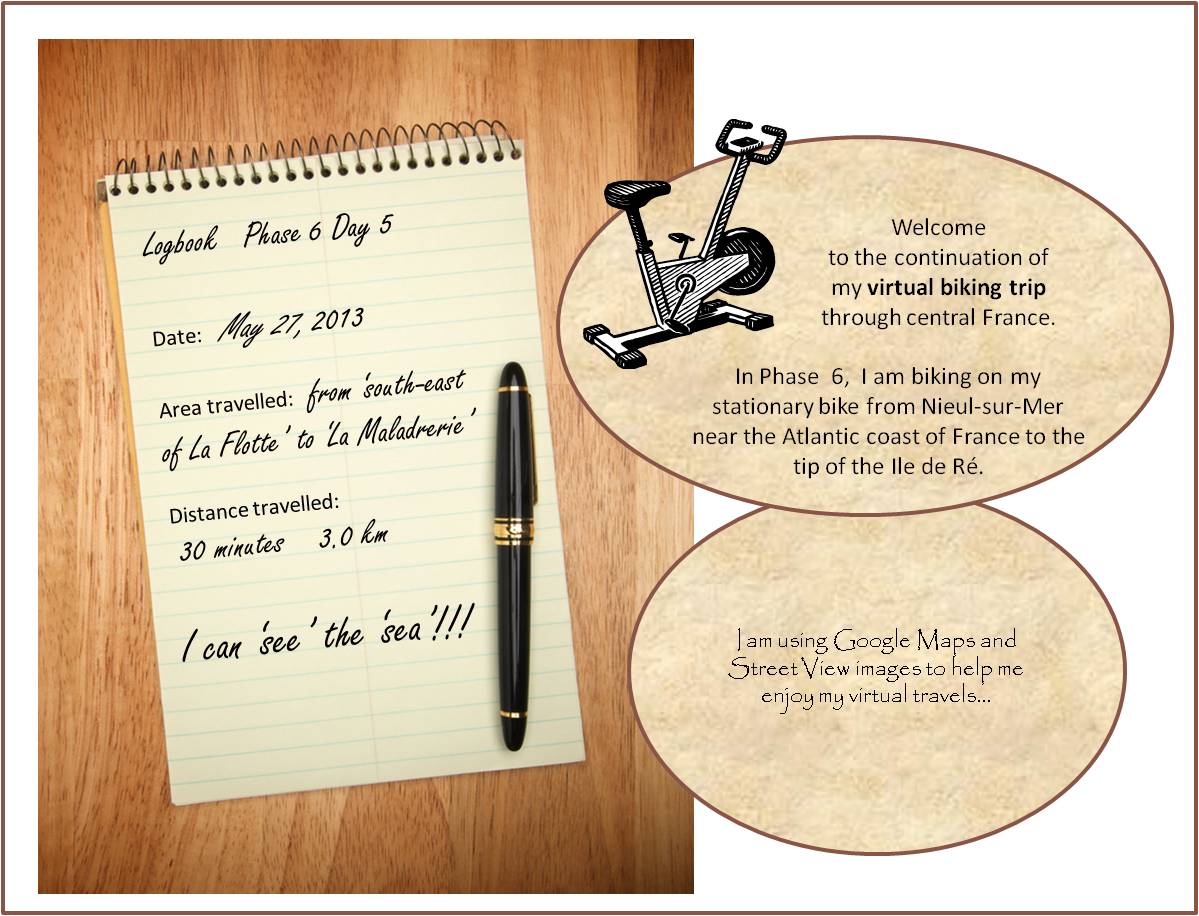 Logbook Phase 6 Day 5
Date: May 27, 2013
Area travelled: from ‘south-east
of La Flotte’ to ‘La Maladrerie’
Distance travelled:
30 minutes 3.0 km
I can ‘see’ the ‘sea’!!!
Welcome
to the continuation of
my virtual biking trip
through central France.
In Phase 6, I am biking on my
stationary bike from Nieul-sur-Mer
near the Atlantic coast of France to the
tip of the Ile de Ré.
I am using Google Maps and
Street View images to help me
enjoy my virtual travels...